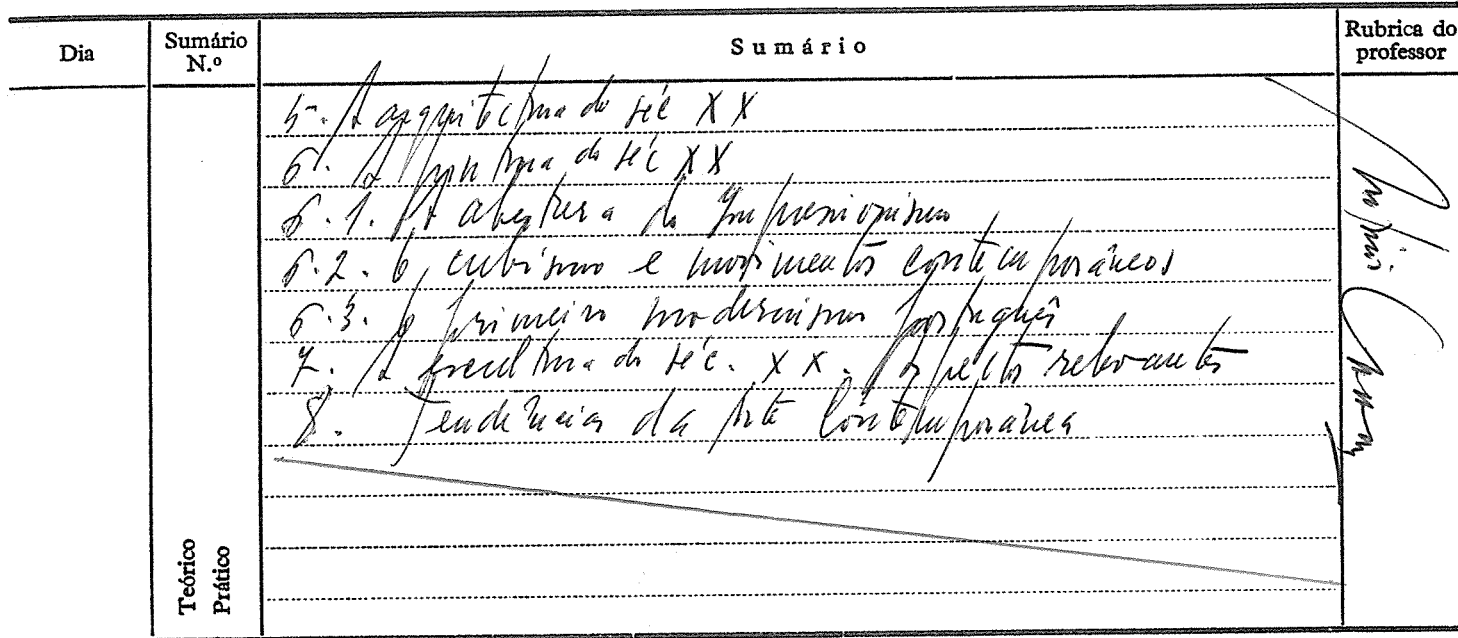 Dia
Sumário N.º
Sumário
Rubrica do professor
5. A arquitectura do séc XX
6. A pintura do séc XX
6.1. A abertura do Impressionismo
6.2. O cubismo e movimentos contemporâneos
6.3. O primeiro modernismo português
7. A escultura do séc. XX. Aspectos relevantes
8. Tendências da Arte Contemporânea
Teórico
Prático